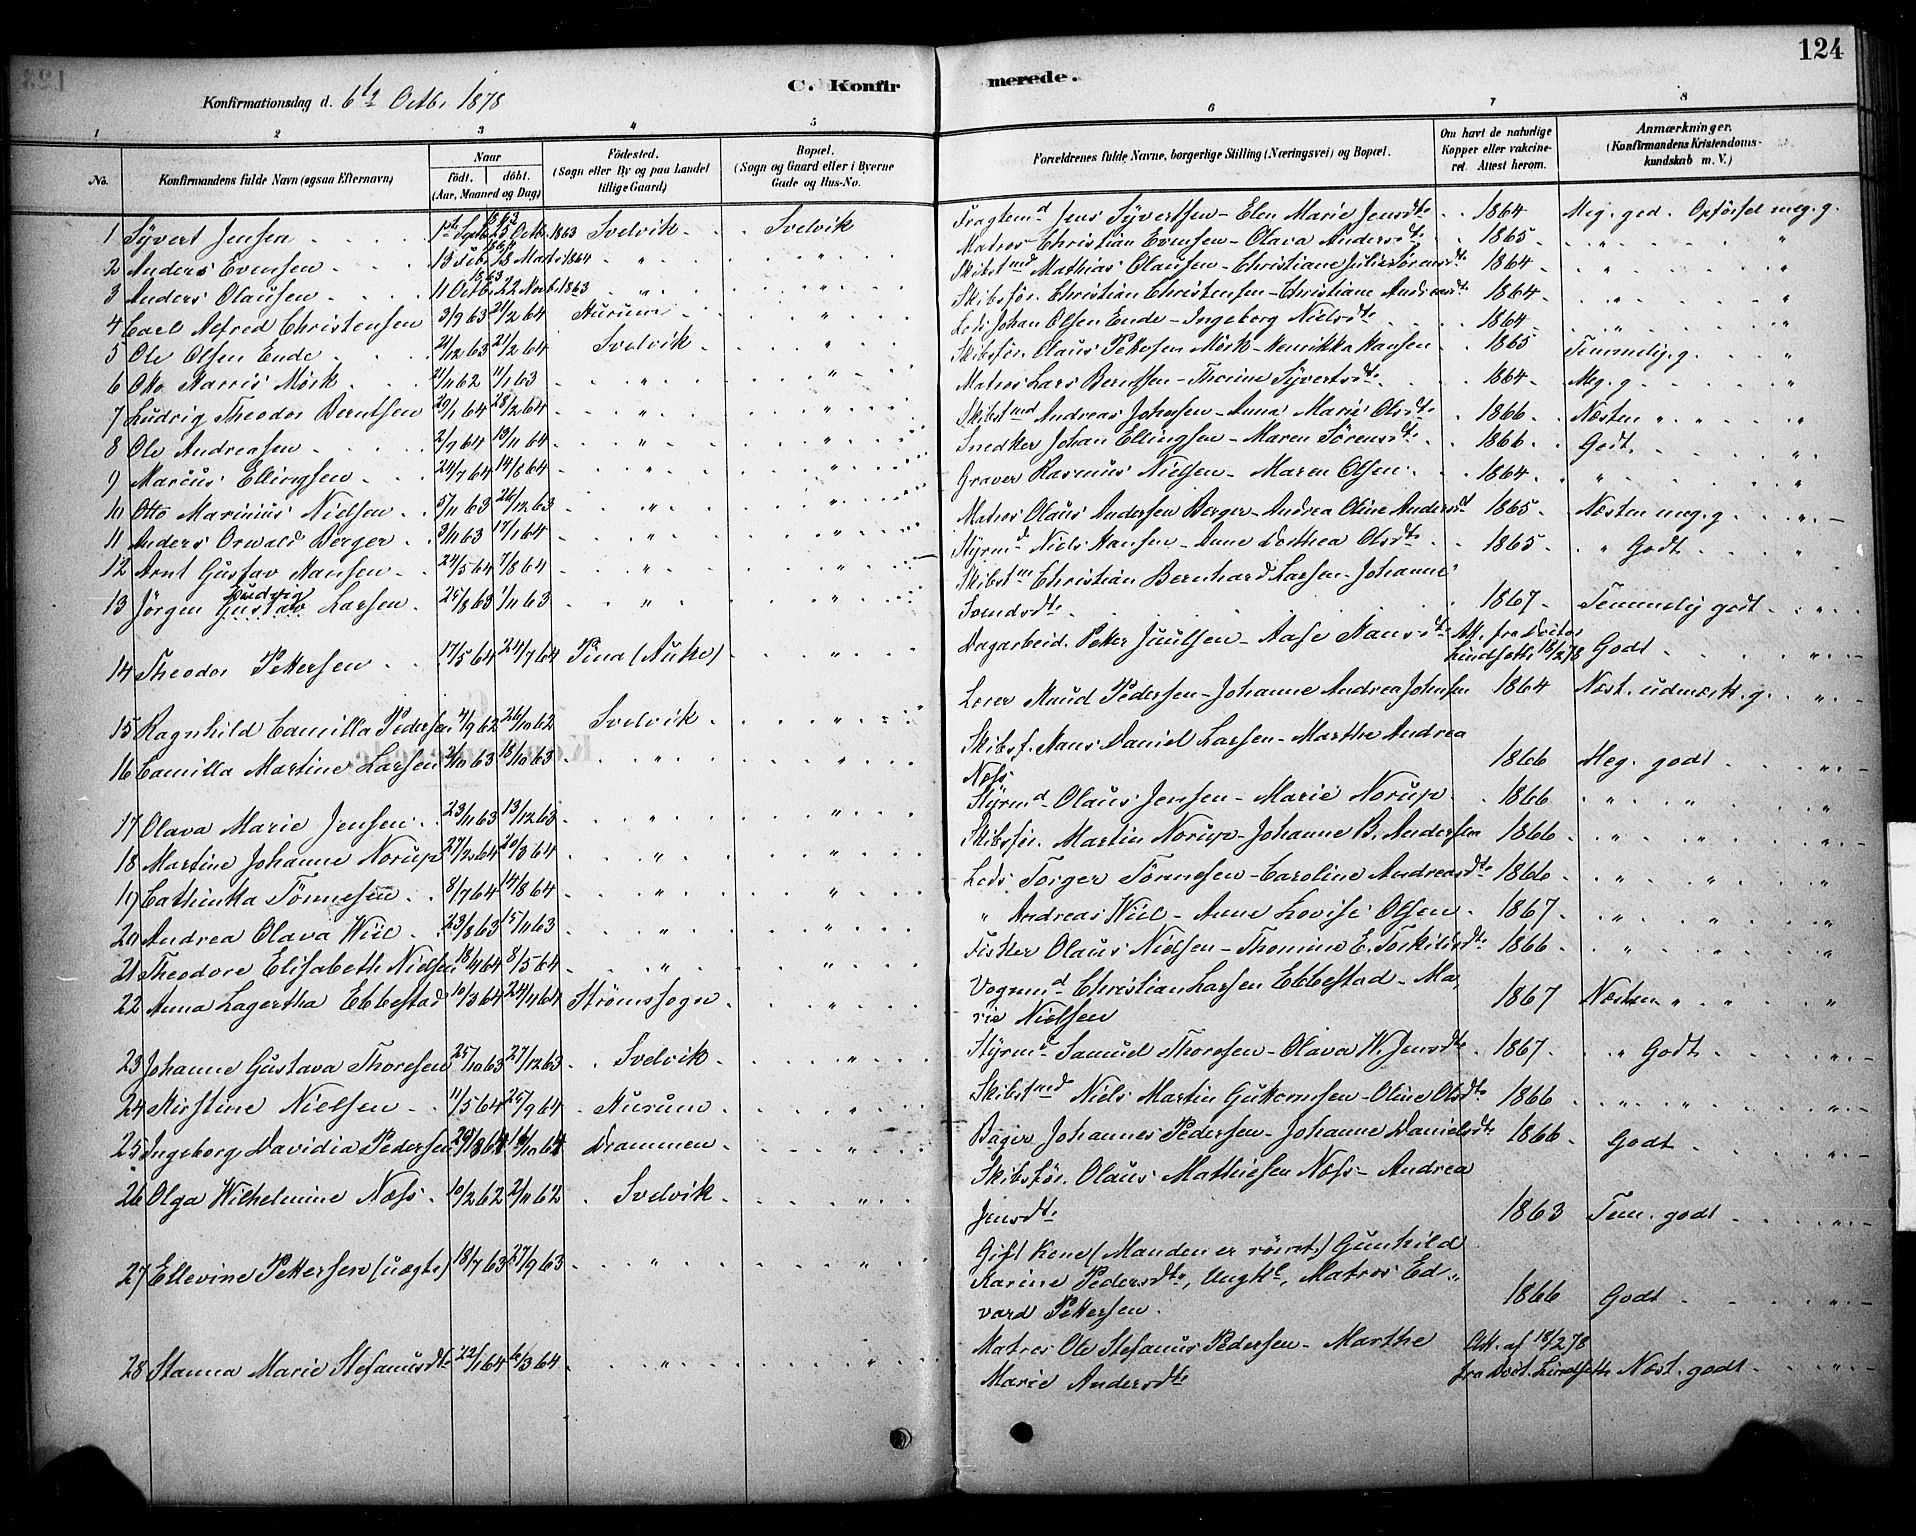 124
C. Konfirmerede.
Konfirmationsdag d. 6te Octb. 1878
1 2 3 4 5 6 7 8
No. Konfirmandens fulde Navn (ogsaa Efternavn) Naar födt. döbt. (Aar, Maaned og Dag) Födested. (Sogn eller By og paa Landet tillige Gaard) Bopæl. (Sogn og Gaard eller i Byerne Gade og Hus-No. Forældrenes fulde Navne, borgerlige Stilling (Næringsvei) og Bopæl. Om havt de naturlige Kopper eller vakcineret. Attest herom. Anmærkninger. (Konfirmandens Kristendomskundskab m. V.)
1 Syvert Jensen 1863 25 Octb. 1863 Svelvik Svelvik Fragtemd Jens Syvertsen - Elen Marie Jensdte 1864 Meg. god. Opförsel meg. g.
2 Anders Evensen 13 Feb. 1864 1864 " " Matros Christian Evensen - Olava Andersdte 1865 " "
3 Anders Olausen 11 Octb. 1863 22 Novb. 1863 " " Skibstmd Mathias Olausen - Christiane Julie Sörensdte 1864 " "
4 Carl Alfred Christensen 3/9 63 21/2 64 Hurum " Skibsför. Christian Christensen - Christiane Andreasdte 1864 " "
5 Ole Olsen Ende 21/12 63 21/2 64 Svelvik " Lods Johan Olsen Ende - Ingeborg Nielsdte 1864 " "
6 Otto Harris Mörk 21/11 62 11/1 63 " " Skibsför. Olaus Pettersen Mörk - Henrikka Hansen 1865 Temmelig g. "
7 Ludvig Theodor Berntsen 29/1 64 28/2 64 " " Matros Lars Berntsen - Thorine Syvertsdte 1864 Meg. g. "
8 Ole Andreasen 2/9 64 13/11 64 " " Skibstmd Andreas Johnsen - Anna Marie Olsdte 1866 Næsten " "
9 Marius Ellingsen 24/7 64 14/8 64 " " Snedker Johan Ellingsen - Maren Sörensdte 1866 Godt "
10 Otto Marinius Nielsen 5/11 63 26/12 63 " " Graver Rasmus Nielsen - Maren Olsen 1864 " "
11 Anders Orwald Berger 3/11 63 17/1 64 " " Matros Olaus Andersen Berger - Andrea Oline Andersdt 1865 Næsten meg. g. "
12 Arnt Gustav Hansen 24/5 64 7/8 64 " " Styrmd Niels Hansen - Anne Dorthea Olsdte 1865 " Godt "
Ludvig
13 Jörgen Gustav Larsen 25/8 63 1/11 63 " " Skibstm Christian Bernhard Larsen - Johanne Svendsdte 1867 Temmelig godt "
14 Theodor Pettersen 17/5 64 24/7 64 " Dagarbeid. Petter Juulsen - Aase Hansdte Att. fra Doctor Lindseth 18/2 78 Godt "
15 Ragnhild Camilla Pedersen 4/9 62 26/10 62 Svelvik " Lærer Knud Pedersen - Johanne Andrea Johnsen 1864 Næst. udmærk. g. "
16 Camilla Martine Larsen 18/10 63 " " Skibsf. Hans Daniel Larsen - Marthe Andrea Næss 1866 Meg. godt "
17 Olava Marie Jensen 23/11 63 13/12 63 " " Styrmd Olaus Jensen - Marie Norup 1866 " " "
18 Martine Johanne Norup 27/2 64 20/3 64 " " Skibsför. Martin Norup - Johanne B. Andersen 1866 " " "
19 Cathinka Tönnesen 8/7 64 14/8 64 " " Lods Torger Tönnesen - Caroline Andreasdte 1866 " " "
20 Andrea Olava Wiil 23/8 63 15/11 63 " " " Andreas Wiil - Anne Lovise Olsen 1867 " " "
21 Theodore Elisabeth Nielsen 18/4 64 8/5 64 " " Fisker Olaus Nielsen - Thomine E. Torkildsdte 1866 " " "
22 Anna Lagertha Ebbestad 10/3 64 24/4 64 Strömssogn " Vognmd Christian Larsen Ebbestad - Marie Nielsen 1867 Næsten " " "
23 Johanne Gustava Thoresen 25/10 63 27/12 63 Svelvik " Styrmd Samuel Thoresen - Olava W. Jensdte 1867 " Godt "
24 Kirstine Nielsen 11/5 64 25/9 64 Hurum " Skibstmd Niels Martin Guttormsen - Oline Olsdte 1866 " " "
25 Ingeborg Davidia Pedersen Drammen " Bager Johannes Pedersen - Johanne Danielsdte 1866 Godt "
26 Olga Wilhelmine Næss 10/2 62 2/11 62 Svelvik " Skibsför. Olaus Mathiesen Næss - Andrea Jensdte 1863 Tem. godt "
27 Ellevine Pettersen (uægte) 18/7 63 27/9 63 " " Gift Kone (Manden er römt.) Gunhild Karine Pedersdte, Ungkl, Matros Edvard Pettersen 1866 Godt "
28 Stanna Marie Stefanusdte 22/1 64 6/3 64 " " Matros Ole Stefanus Pedersen - Marthe Marie Andersdte Att. af 18/2 78 fra Doct. Lindseth Næst. godt "